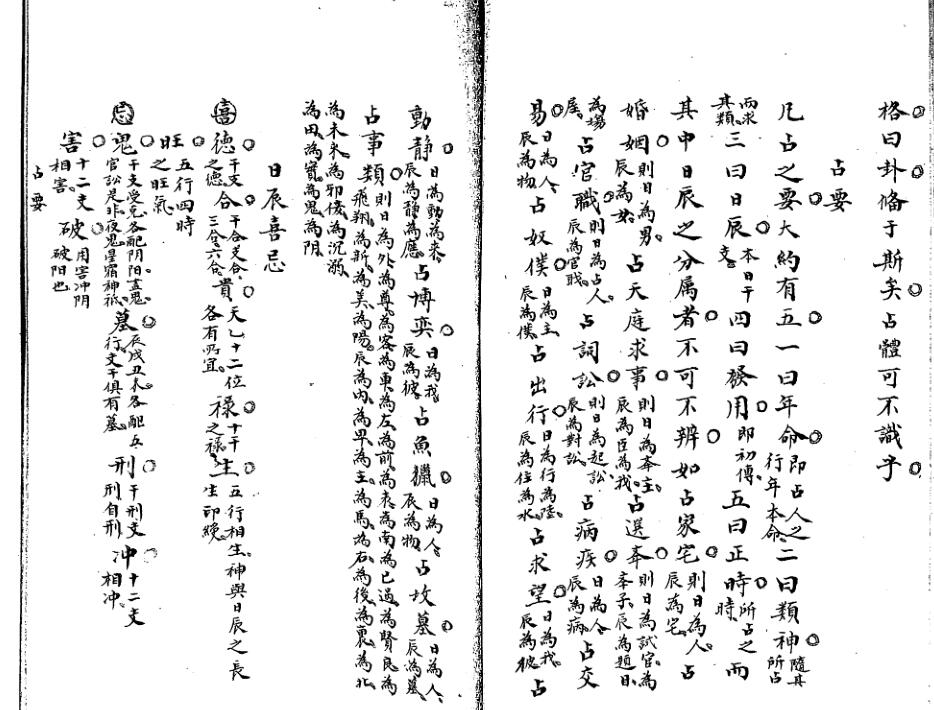 格曰卦俻于斯矣占體可不識乎
占要
凡占之要大約有五一曰年命即占人之行年本命二曰類神隨其所占
而求其類三曰日辰本日干支四曰發用即初傳五曰正時所占之時而
其中日辰之分属者不可不辨如占家宅則日為人辰為宅占
婚姻則日為男辰為女占天庭求事則日為君主辰為臣為我占選舉則日為試官為
為場屋占官職則日為占人辰為官職占詞訟則日為起訟辰為對訟占病疾日為人辰為病占交
易日為人辰為物占奴僕日為主辰為僕占出行日為行為陸辰為住為水占求望日為我辰為彼占
動静日為動為来辰為静為應占博奕日為我辰為彼占魚獵日為人辰為物占坟墓日為人辰為墓
占事類則日為外為尊為客為東為左為前為表為南為已過為賢良為飛翔為新為美為陽辰為内為卑為主為馬為右為後為裏為北
為未来為邪佞為沉溺為田為寳為鬼為阴
日辰喜忌
喜 德干支之德合干合支合三合六合貴天乙十二位各有所宜禄十干之禄生五行相生神與日辰之長生印綬
旺五行四時之旺氣
忌 鬼干支受克各配阴阳畫鬼官訟是非夜鬼星宿神祇墓辰戌丑未各配五行支干俱有墓刑干刑支刑自刑冲十二支相冲
害十二支相害破用害冲阴破阳也
占要